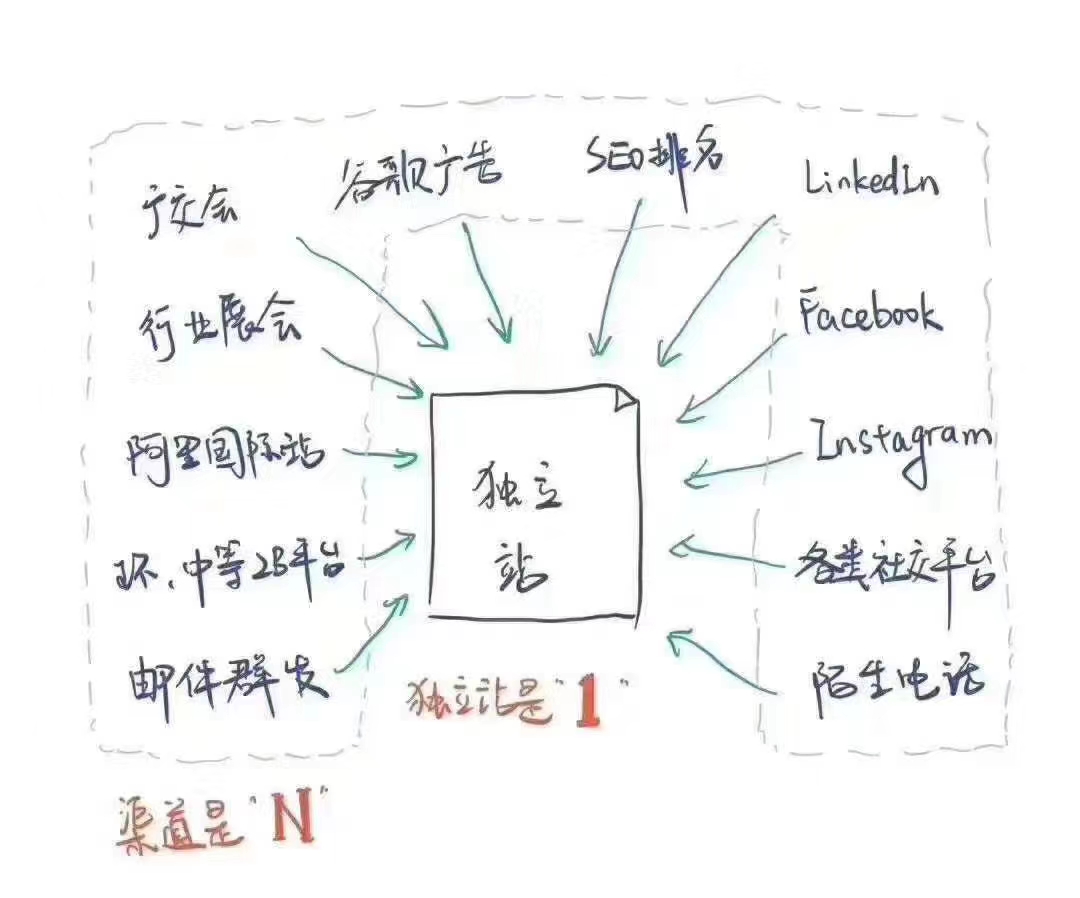 广交会
谷歌广告
SEO排名
LinkedIn
行业展会
Facebook
阿里国际站
Instagram
环、中等2B平台
各类社交平台
邮件群发
陌生电话
独立
站
独立站是"1"
渠道是"N"